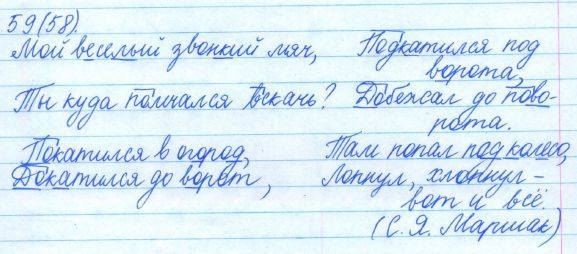 59(58).
Мой веселый звонкий мяч,
Ты куда помчался вскачь?
Покатился в огород,
Докатился до ворот,
Подкатился под
ворота,
Добежал до пово-
рота.
Там попал под колесо,
Лопнул, хлопнул -
вот и всё.
(С. Я. Маршак)